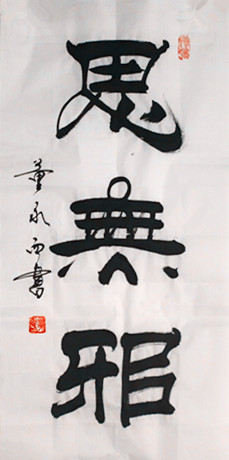 思無邪
董永西書